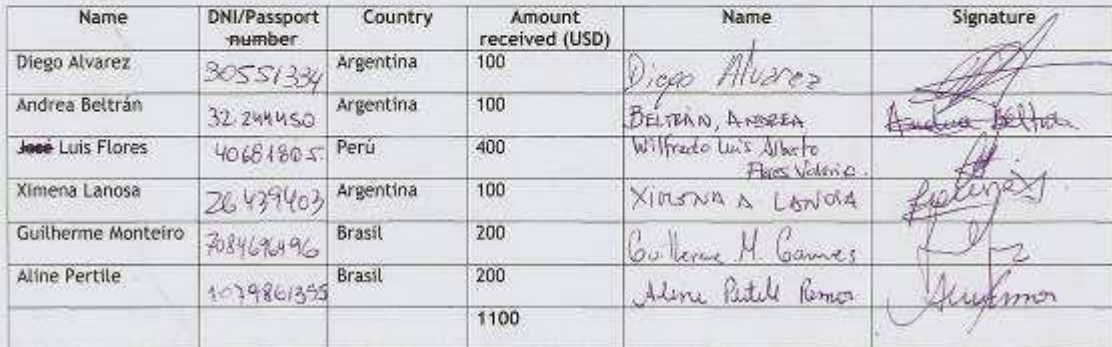 Name DNI/Passport number Country Amount received (USD) Name Signature
Diego Alvarez 30551334 Argentina 100 Diego Alvarez
Andrea Beltrán 32.244450 Argentina 100 BELTRÁN, ANDREA Andrea Beltrán
José Luis Flores 40681805 Perú 400 Wilfredo Luis Alberto Flores
Ximena Lanosa 26439403 Argentina 100 XIMENA A LANOSA
Guilherme Monteiro Brasil 200 Guilherme M. Gomes
Aline Pertile Brasil 200 Aline Pertile Ramos
1100